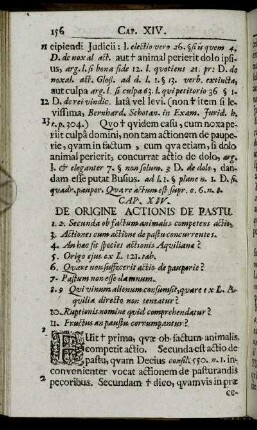 156 CAP. XIV.
cipiendi Judicii: l. electio vero 26. §si is quem 4.
D. de noxal act. aut † animal perierit dolo ipsi-
us, arg. l. si bona fide 12. l. quotiens 21. pr: D. de
noxal. act. Glos. ad d. l. 1. § 13. verb. extincta,
aut culpa arg. l. si culpa 63. l. qui petitorio 36 § 1.
12 D. de rei vindic. lata vel levi. (non † item si le-
vissima, Bernhard. Schotan. in Exam. jurid. h.
13 t. p. 304.) Quo † quidem casu, cum noxa pe-
rierit culpâ domini, non tam actionem de paupe-
rie, quam in factum, cum qua etiam, si dolo
animal perierit, concurrat actio de dolo, arg.
l. et eleganter 7. § non solum. 3 D. de dolo, dan-
dam esse putat Busius. ad l. 1. § plane n. 1. D. si
quadr. paupər. Quare actum est supr. c. 6. n. 8.
CAP. XIV.
DE ORIGINE ACTIONIS DE PASTU.
1. 2. Secunda ob factum animalis competens actio.
3. Actiones cum actione de pastu concurrentes.
4. An hæc sit species actionis Aquiliana?
5. Origo ejus ex L. 12. tab.
6. Quare non suffecerit actio de pauperie?
7. Pastum non esse damnum.
8. 9 Qui vinum alienum consumsit, quare ex L. A-
quilia directo non teneatur?
10. Ruptionis nomine quid comprehendatur?
11. Fructus an pastu corrumpantur?
1 FUit † prima, quæ ob factum animalis,
competit actio. Secunda est actio de
pastu, quam Decius consil. 550. n. 1. in-
convenienter vocat actionem de pasturandis
2 pecoribus. Secundam † dico, quamvis in præ
ce-